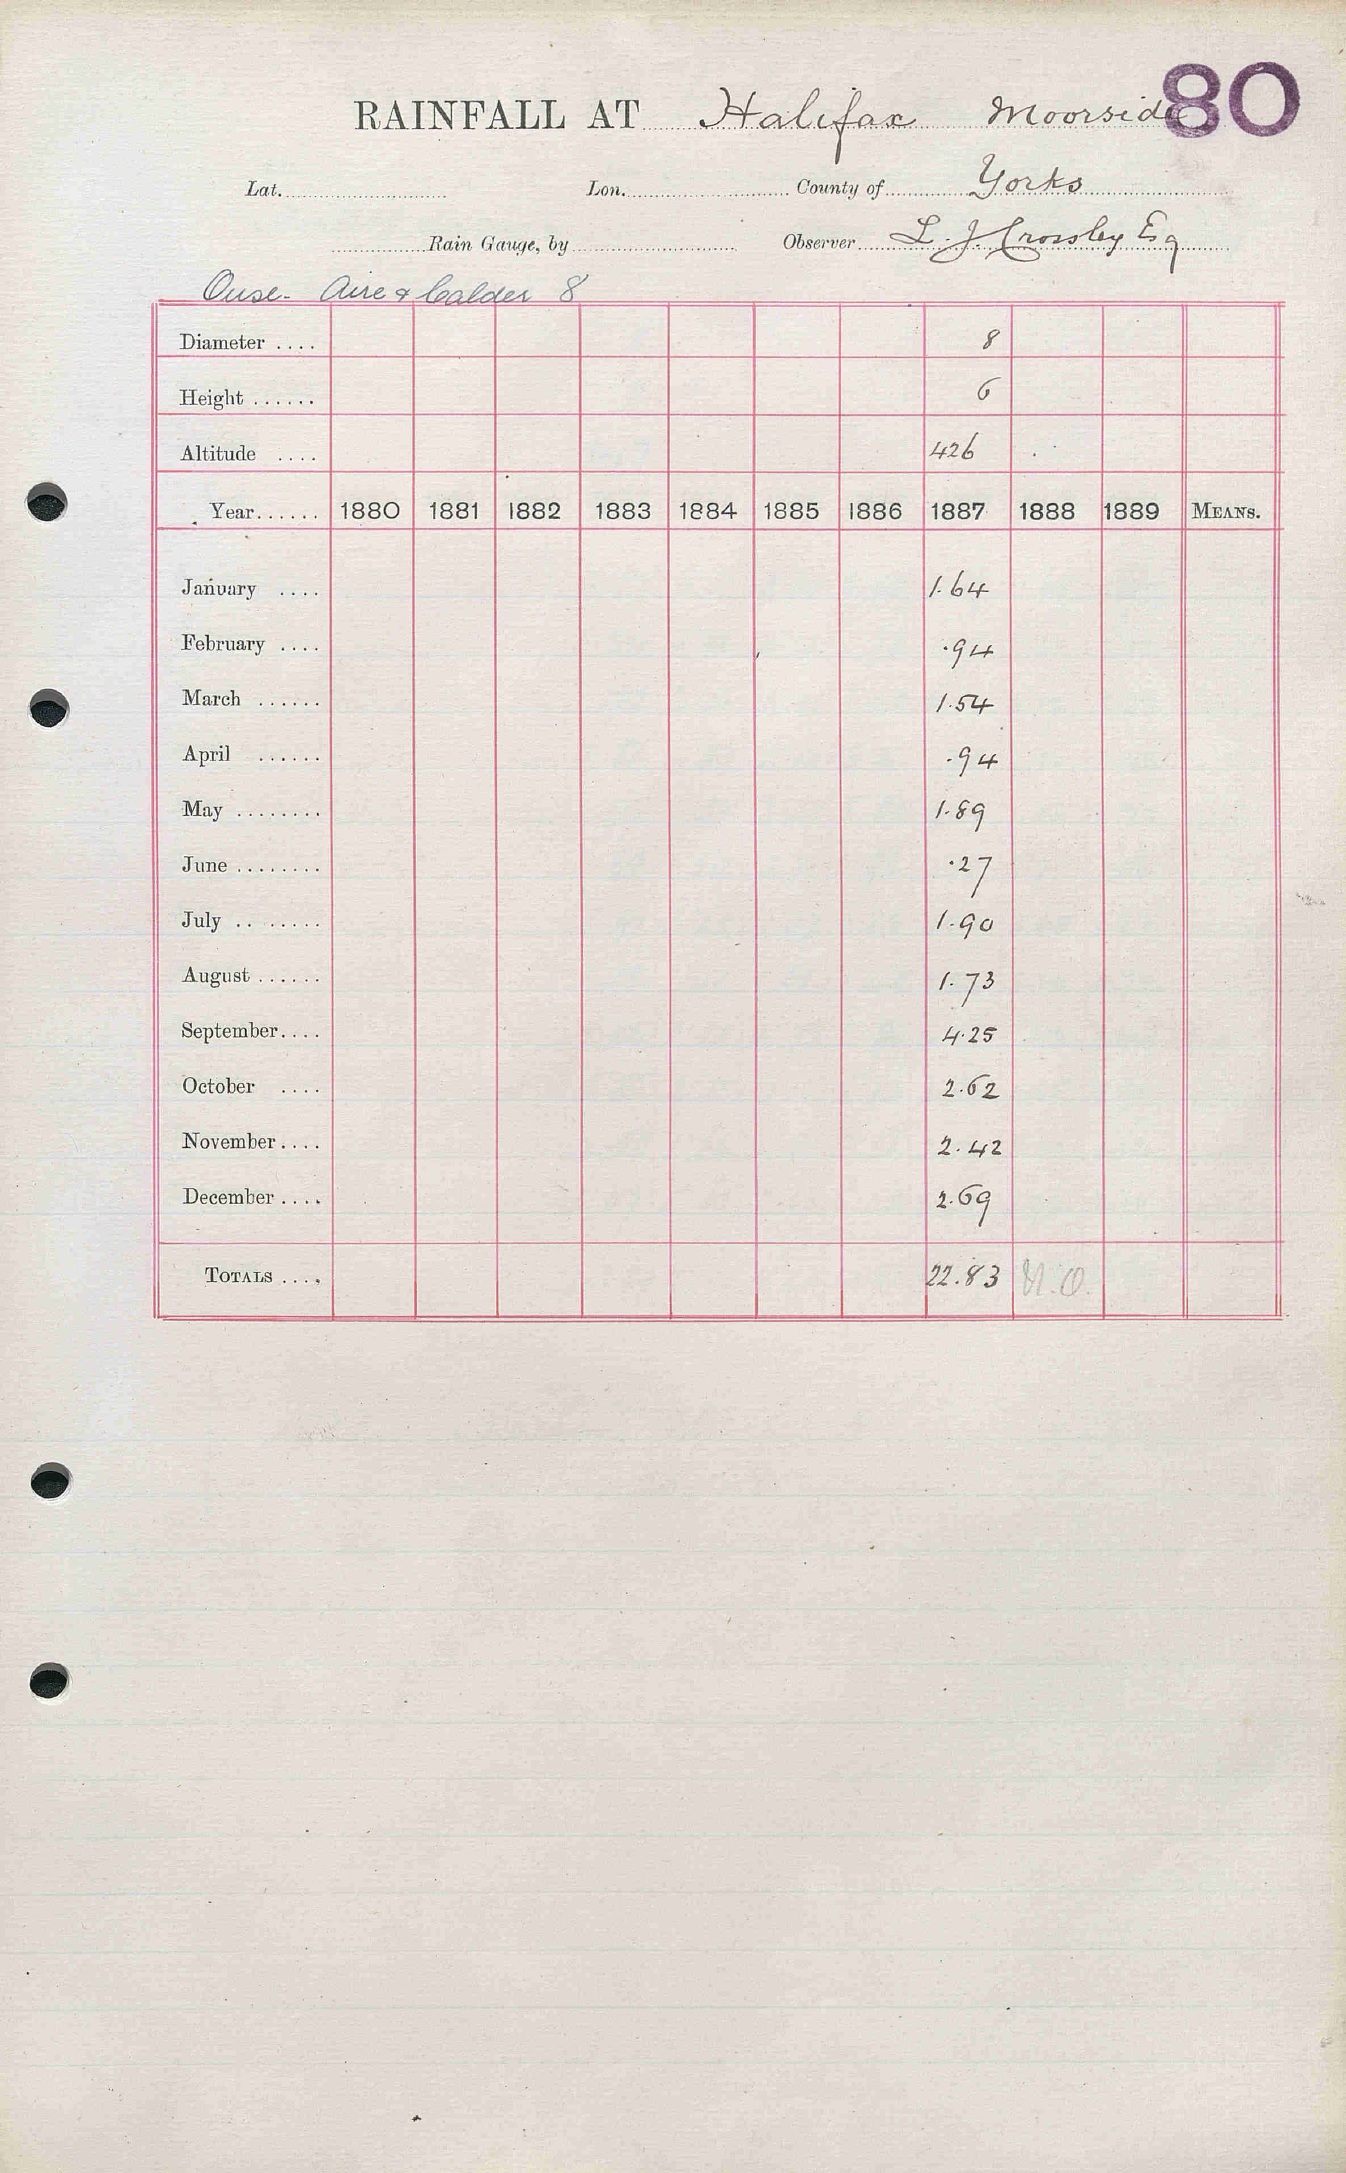 80
RAINFALL AT Halifax Moorside
Lat. Lon. County of Yorks
Rain Gauge, by Observer L. J. Crossley Esq
Ouse. Aire & Calder 8
Diameter .... 8
Height ...... 6
Altitude .... 426
Year...... 1880 1881 1882 1883 1884 1885 1886 1887 1888 1889 MEANS.
January .... 1.64
February .... .94
March ...... 1.54
April ...... .94
May ........ 1.89
June ........ .27
July ........ 1.90
August ...... 1.73
September.... 4.25
October .... 2.62
November.... 2.42
December.... 2.69
TOTALS .... 22.83 N.O.